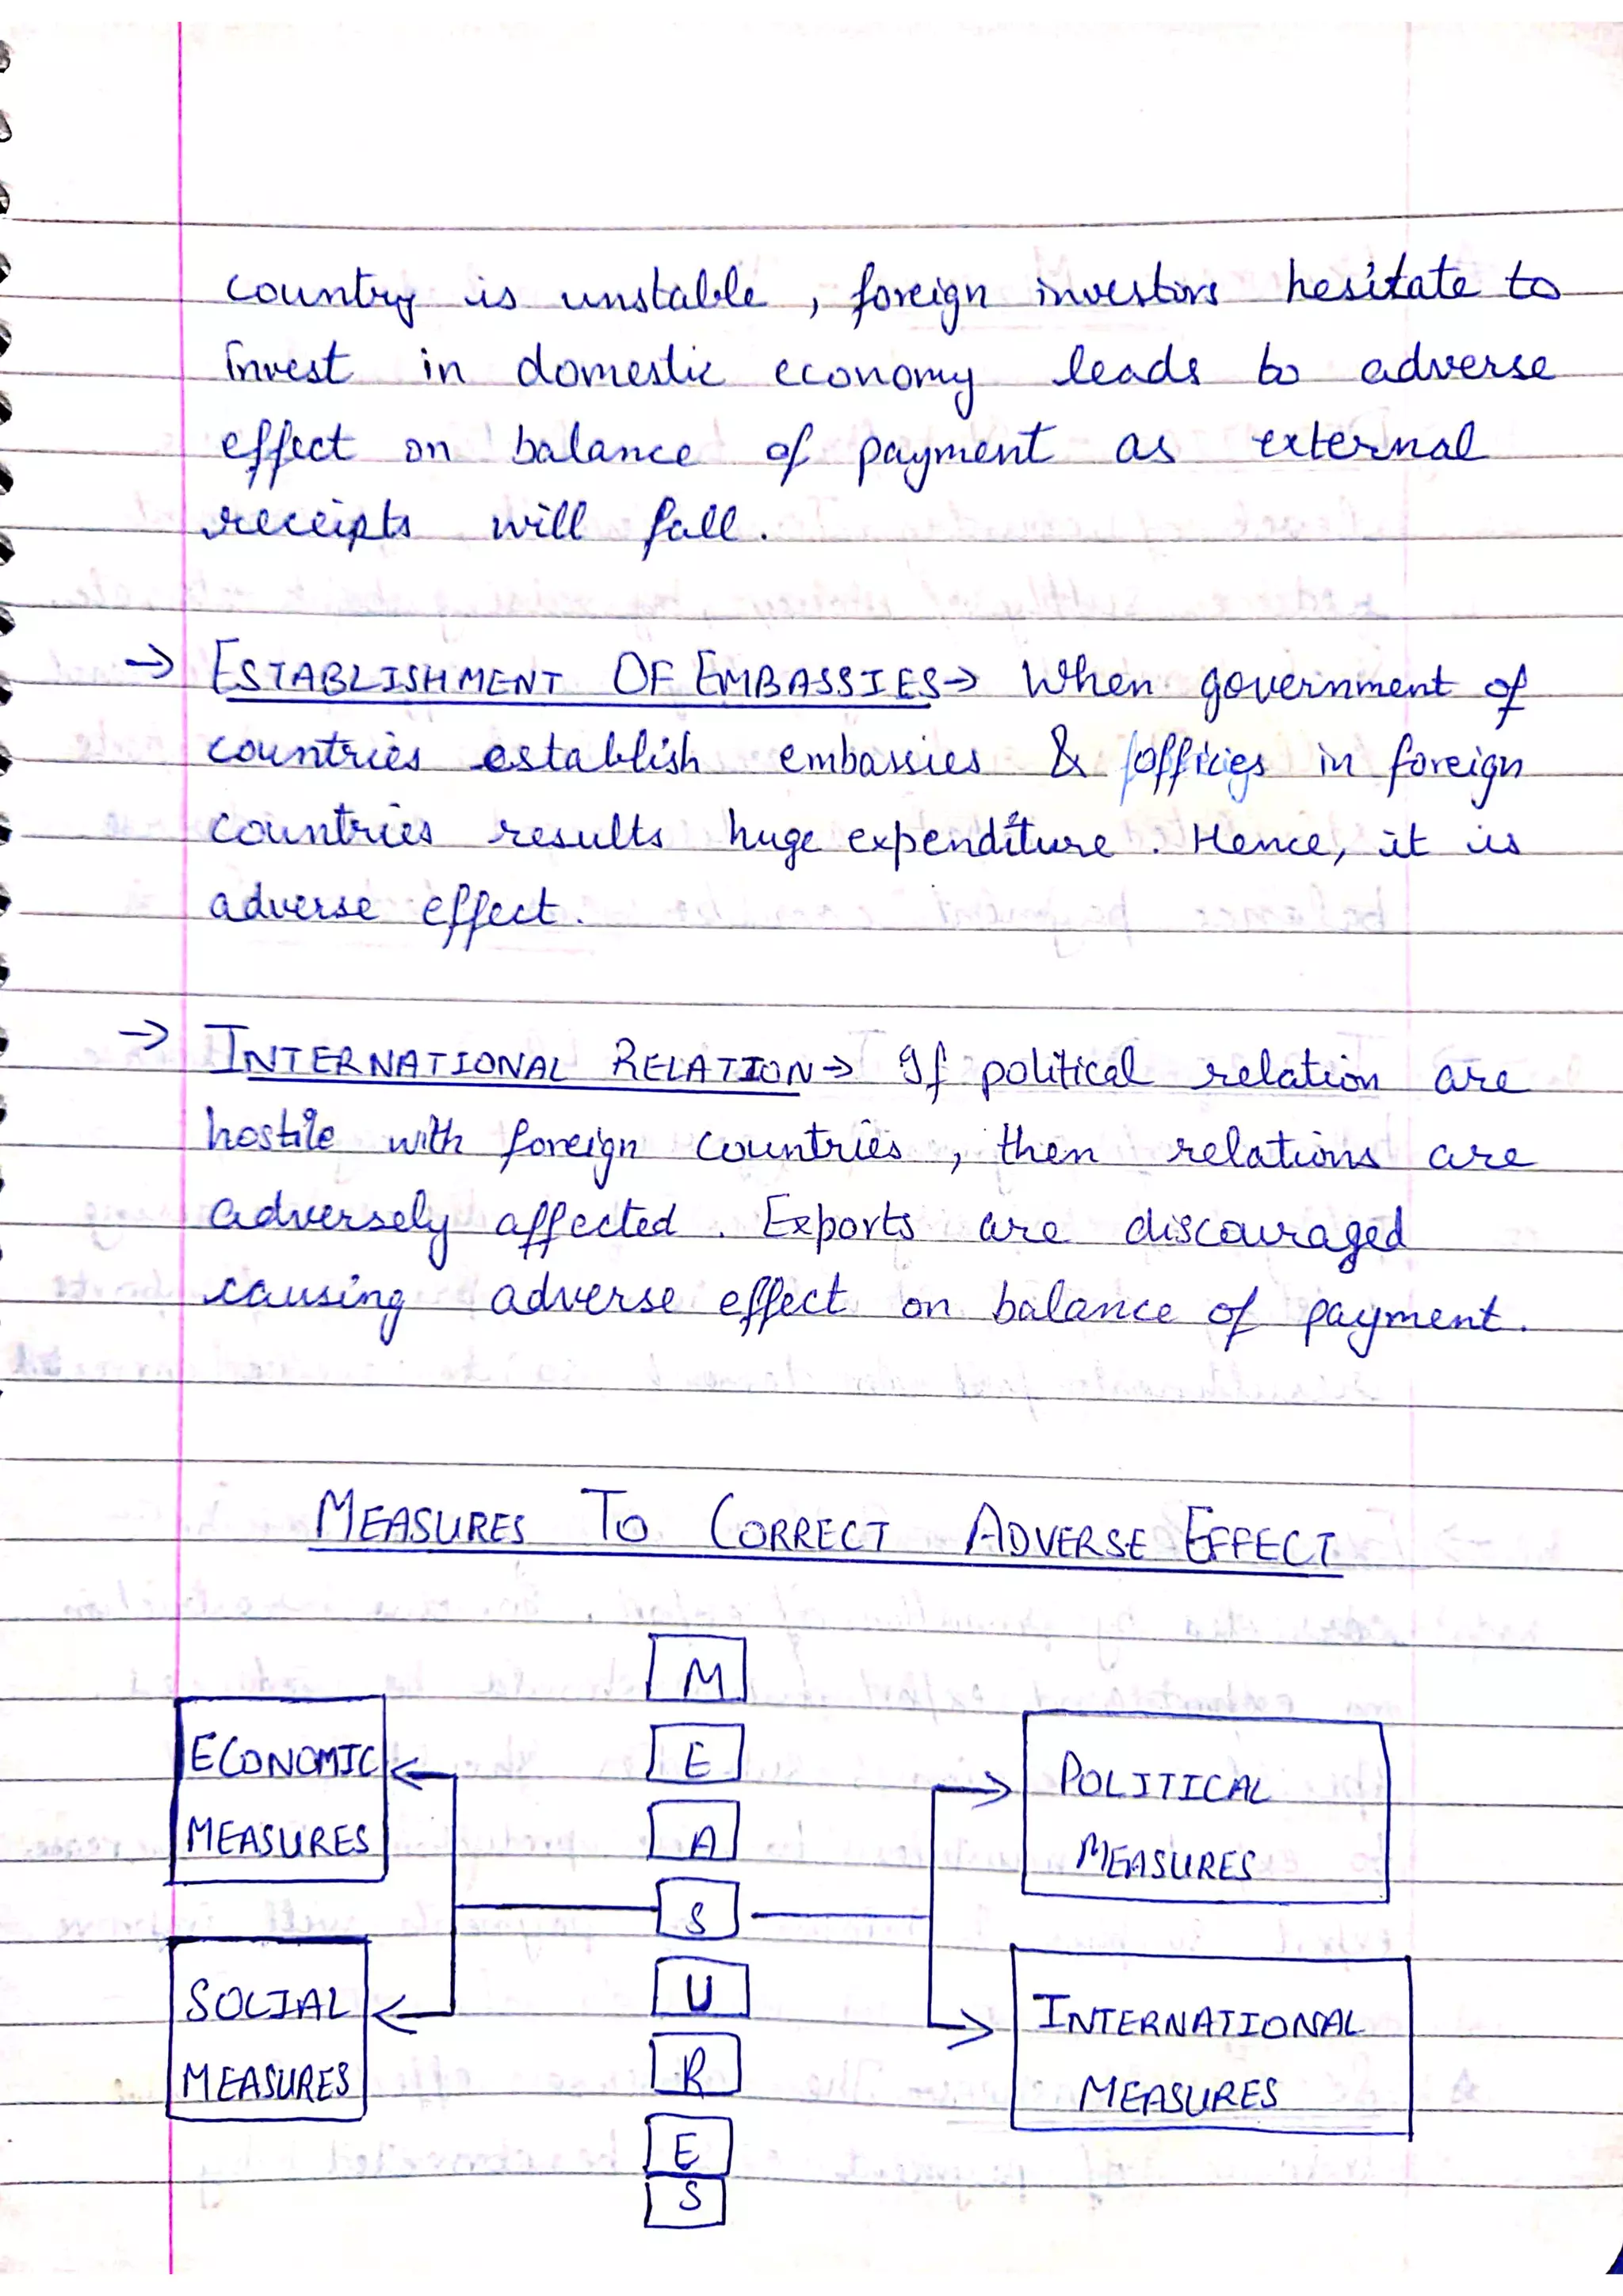 country is unstable, foreign investors hesitate to
invest in domestic economy leads to adverse
effect on balance of payment as external
receipts will fall.
→ ESTABLISHMENT OF EMBASSIES → When government of
countries establish embassies & offices in foreign
countries results huge expenditure. Hence, it is
adverse effect.
→ INTERNATIONAL RELATION → If political relation are
hostile with foreign countries, then relations are
adversely affected. Exports are discouraged
causing adverse effect on balance of payment.
MEASURES TO CORRECT ADVERSE EFFECT
M
E
A
S
U
R
E
S
ECONOMIC
MEASURES
SOCIAL
MEASURES
POLITICAL
MEASURES
INTERNATIONAL
MEASURES